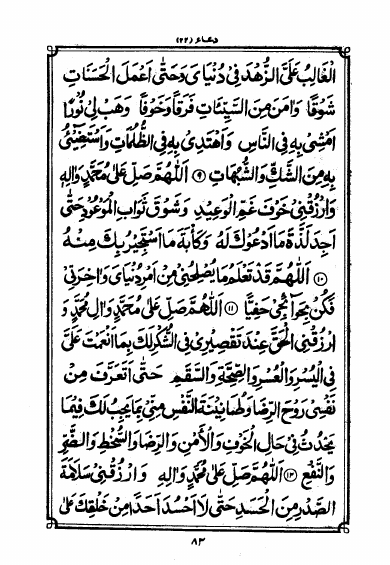 دعاء (٢٢)
الغَالِبُ عَلَيَّ الزُّهْدَ فِيْ دُنْيَايَ وَحَتّٰى اَعْمَلَ الْحَسَنَاتِ
شَوْقًا وَاٰمَنَ مِنَ السَّيِّئَاتِ فَرَقًا وَخَوْفًا وَهَبْ لِيْ نُوْرًا
اَمْشِيْ بِهٖ فِي النَّاسِ وَاَهْتَدِيْ بِهٖ فِي الظُّلُمَاتِ وَاَسْتَضِيْٓئُ
بِهٖ مِنَ الشَّكِّ وَالشُّبُهَاتِ ﴿٩﴾ اَللّٰهُمَّ صَلِّ عَلٰى مُحَمَّدٍ وَّاٰلِهٖ
وَارْزُقْنِيْ خَوْفَ غَمِّ الْوَعِيْدِ وَشَوْقَ ثَوَابِ الْمَوْعُوْدِ حَتّٰى
اَجِدَ لَذَّةَ مَا اَدْعُوْكَ لَهٗ وَكَاٰبَةَ مَا اَسْتَجِيْرُ بِكَ مِنْهُ
﴿١٠﴾ اَللّٰهُمَّ قَدْ تَعْلَمُ مَا يُصْلِحُنِيْ مِنْ اَمْرِ دُنْيَايَ وَاٰخِرَتِيْ
فَكُنْ بِحَوَآئِجِيْ حَفِيًّا ﴿١١﴾ اَللّٰهُمَّ صَلِّ عَلٰى مُحَمَّدٍ وَّاٰلِ مُحَمَّدٍ وَ
ارْزُقْنِي الْحَقَّ عِنْدَ تَقْصِيْرِيْ فِي الشُّكْرِ لَكَ بِمَا اَنْعَمْتَ عَلَيَّ
فِي الْيُسْرِ وَالْعُسْرِ وَالصِّحَّةِ وَالسَّقَمِ حَتّٰى اَتَعَرَّفَ مِنْ
نَفْسِيْ رَوْحَ الرِّضَا وَطُمَانِيْنَةَ النَّفْسِ مِنِّيْ بِمَا يَجِبُ لَكَ فِيْمَا
يَحْدُثُ فِيْ حَالِ الْخَوْفِ وَالْاَمْنِ وَالرِّضَا وَالسُّخْطِ وَالضَّرِّ
وَالنَّفْعِ ﴿١٢﴾ اَللّٰهُمَّ صَلِّ عَلٰى مُحَمَّدٍ وَّاٰلِهٖ وَارْزُقْنِيْ سَلَامَةَ
الصَّدْرِ مِنَ الْحَسَدِ حَتّٰى لَا اَحْسُدَ اَحَدًا مِنْ خَلْقِكَ عَلٰى
٨٣